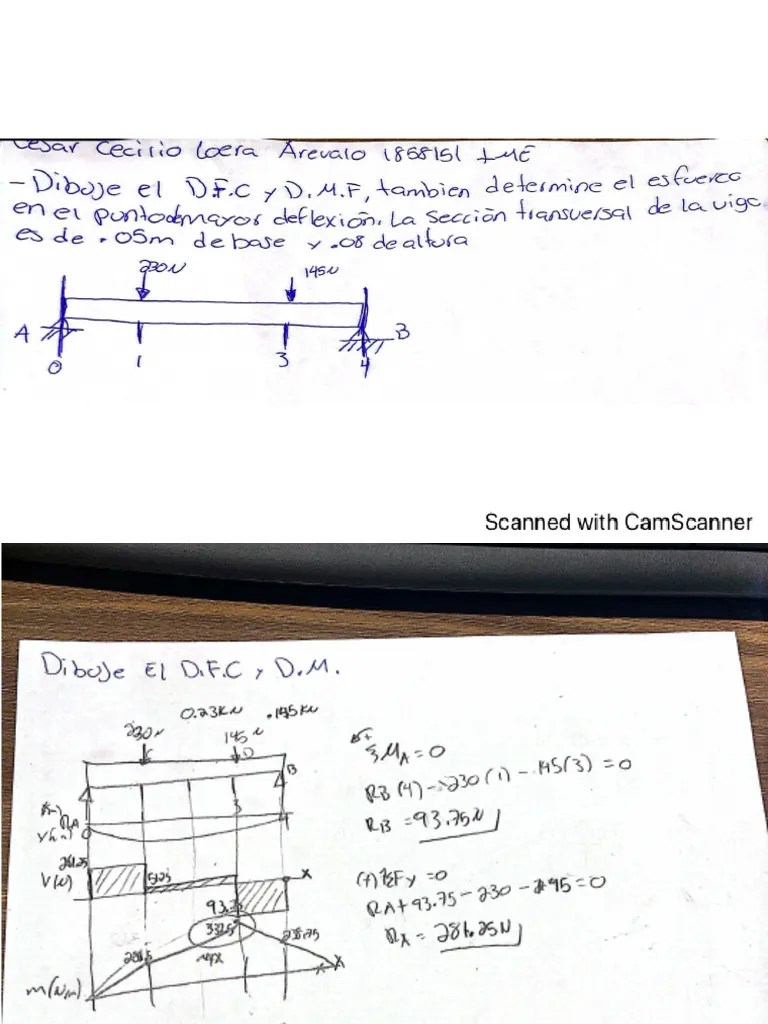 Cesar Cecilio Loera Arevalo 1858151 IME
- Dibuje el D.F.C y D.M.F, tambien determine el esfuerzo
en el punto de mayor deflexión. La sección transversal de la viga
es de .05m de base y .08 de altura
230N 145N
A B
0 1 3 4
Scanned with CamScanner
Dibuje El D.F.C y D.M.
0.23KN .145KN
230N 145N
C D
B
RA
ΣMA = 0
RB (4) - 230 (1) - 145(3) = 0
RB = 93.75N
V(N)
51.25
X
93.75
(+) ΣFy = 0
RA + 93.75 - 230 - 145 = 0
RA = 281.25N
332.5
238.75
M(Nm)
X